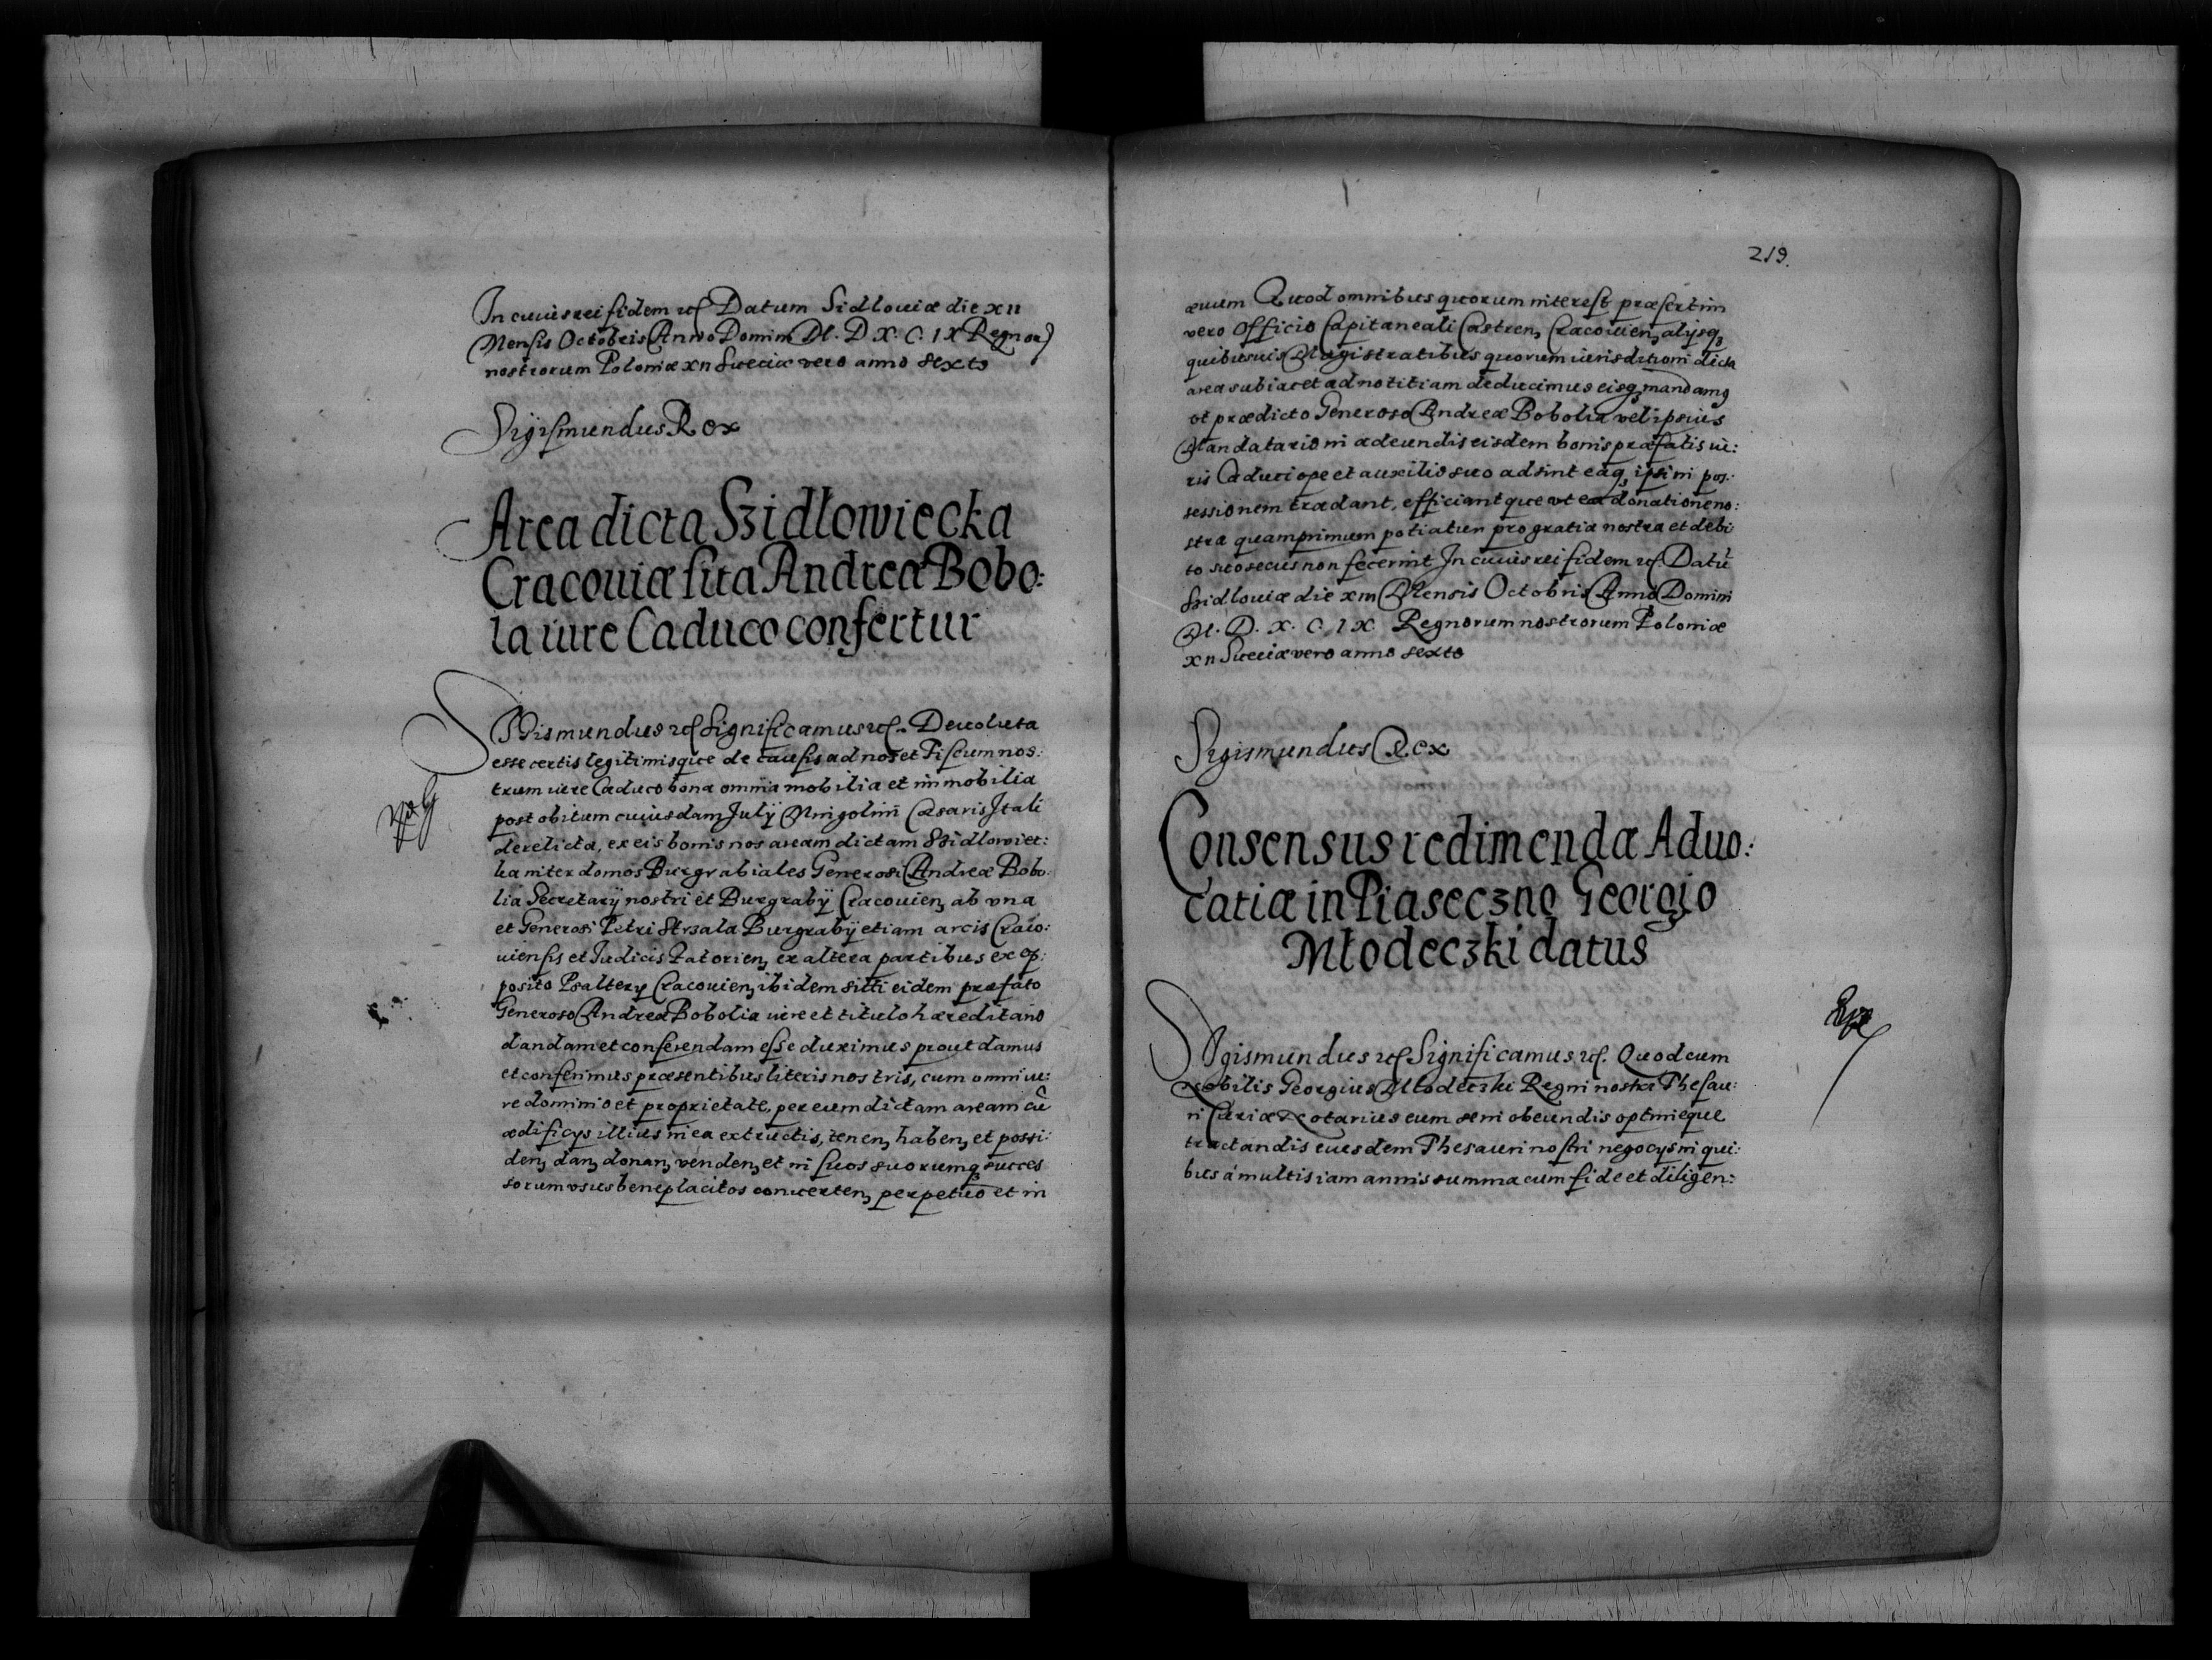 In cuius rei fidem etc Datum Sidlouiæ die XII
Mensis Octobris Anno Domini M. D. X. C. IX Regnor
nostrorum Poloniæ XII Sueciæ vero anno sexto
Sigismundus Rex
Area dicta Szidłowiecka
Cracouiæ sita Andreæ Bobo:
la iure Caduco confertur
Sigismundus etc Significamus etc. Deuoluta
esse certis legitimisque de causis ad nos et Fiscum nos:
trum iure Caduco bona omnia mobilia et immobilia
post obitum cuiusdam Julij Itali
derelicta, ex eis bonis nos aream dictam Szidlowiec:
ka inter domos Burgrabiales Generosi Andreæ Bobo:
lia Secretarij nostri et Burgrabij Cracouien, ab vna
et Generosi Petri Strzala Burgrabij etiam arcis Craco:
uiensis et Iudicis Zatorien, ex altera partibus ex op:
posito Psaltery Cracouien, ibidem sitti eidem præfato
Generoso Andreæ Bobolia iure et titulo hæreditario
dandam et conferendam esse duximus prout damus
et conferimus præsentibus literis nostris, cum omni iu:
re dominio et proprietate, per eum dictam aream cū
ædificys illius in ea extructis, tenen, haben, et possi:
den, dan, donan, venden, et in suos suorumq succes
sorum vsus beneplacitos conuerten, perpetuo et in
219.
æuum Quod omnibus quorum interest præsertim
vero Officio Capitaneali Castren, Cracouien, alijsq
quibusuis Magistratibus quorum iurisditioni dicta
area subiacet ad notitiam deducimus eisq mandamq
vt prædicto Generoso Andreæ Bobolia vel ipsius
Mandatario in adeundis eisdem bonis præfatis iu:
ris Caduci ope et auxilio suo adsint eaq ipsi in pos:
sessionem tradant, efficiantque vt ea donatione no:
stra quamprimum potiatur pro gratia nostra et debi
to suo secus non fecerint In cuius rei fidem etc Datū
Szidlouiæ die XIII Mensis Octobris Anno Domini
M. D. X. C. IX. Regnorum nostrorum Poloniæ
XII Sueciæ vero anno sexto
Sigismundus Rex
Consensus redimendæ Aduo:
catiæ in Piaseczno Georgio
Młodeczki datus
Sigismundus etc Significamus etc. Quod cum
Nobilis Georgius Młodeczki Regni nostri Thesau:
ri Curiæ Notarius eum se in obeundis optimeque
tractandis eiusdem Thesauri nostri negocys in qui:
bus á multis iam annis summa cum fide et diligen: